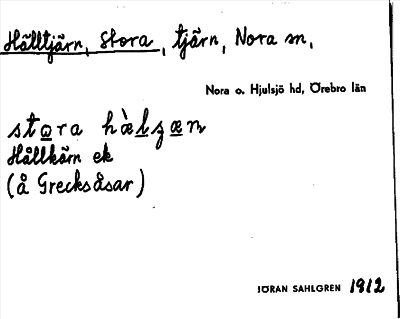 Hålltjärn, Stora, tjärn, Nora sn,
Nora o. Hjulsjö hd, Örebro län
stọra hæ̀lzæn
Hållkärn ek
(å Grecksåsar)
JÖRAN SAHLGREN 1912